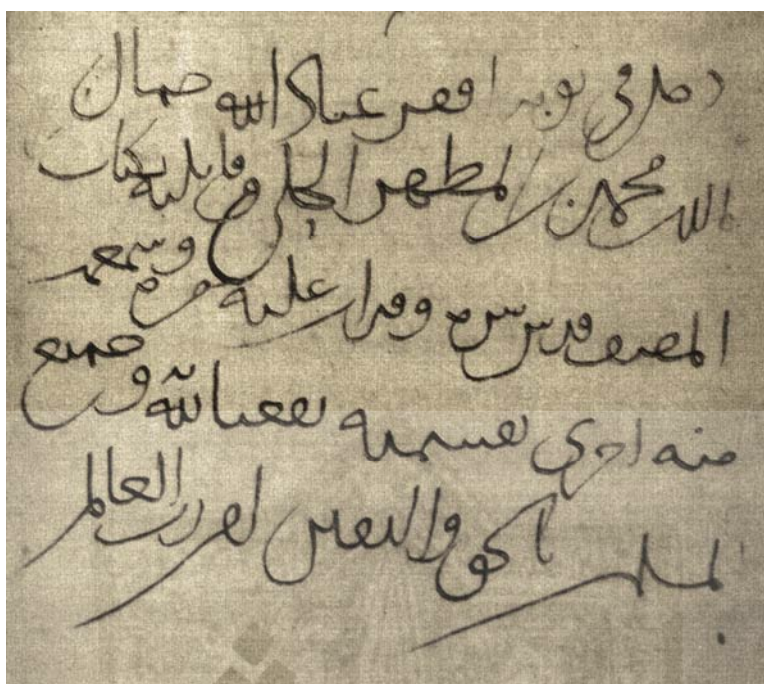 دخل في نوبة افقر عباد الله جمال
الدين محمد بن المطهر الحلي وقابلته بكتاب
المصنف قدس سره وقرات عليه مرة وسمعه
منه اخرى نفعنا الله وجميع
المسلمين الحق واليقين